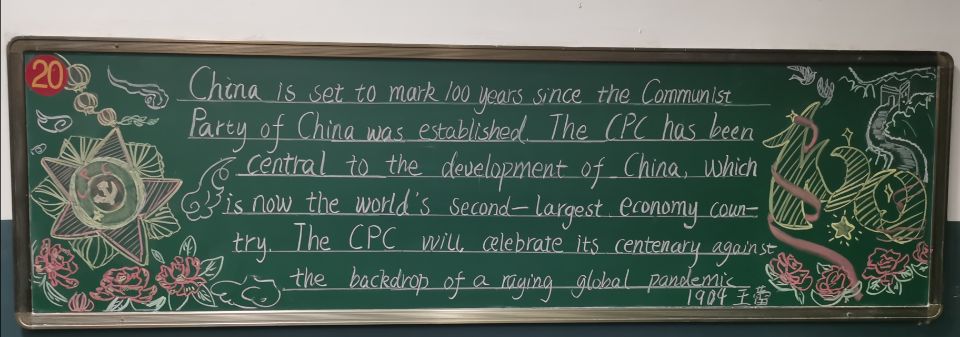 20
China is set to mark 100 years since the Communist
Party of China was established. The CPC has been
central to the development of China, which
is now the world's second-largest economy coun-
try. The CPC will celebrate its centenary against
the backdrop of a raging global pandemic
1904 王蕾
100